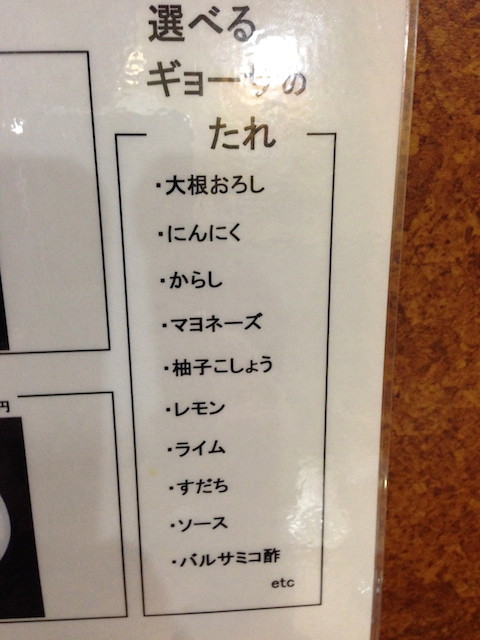 選べる
ギョーザの
たれ
・大根おろし
・にんにく
・からし
・マヨネーズ
・柚子こしょう
・レモン
・ライム
・すだち
・ソース
・バルサミコ酢
etc
円